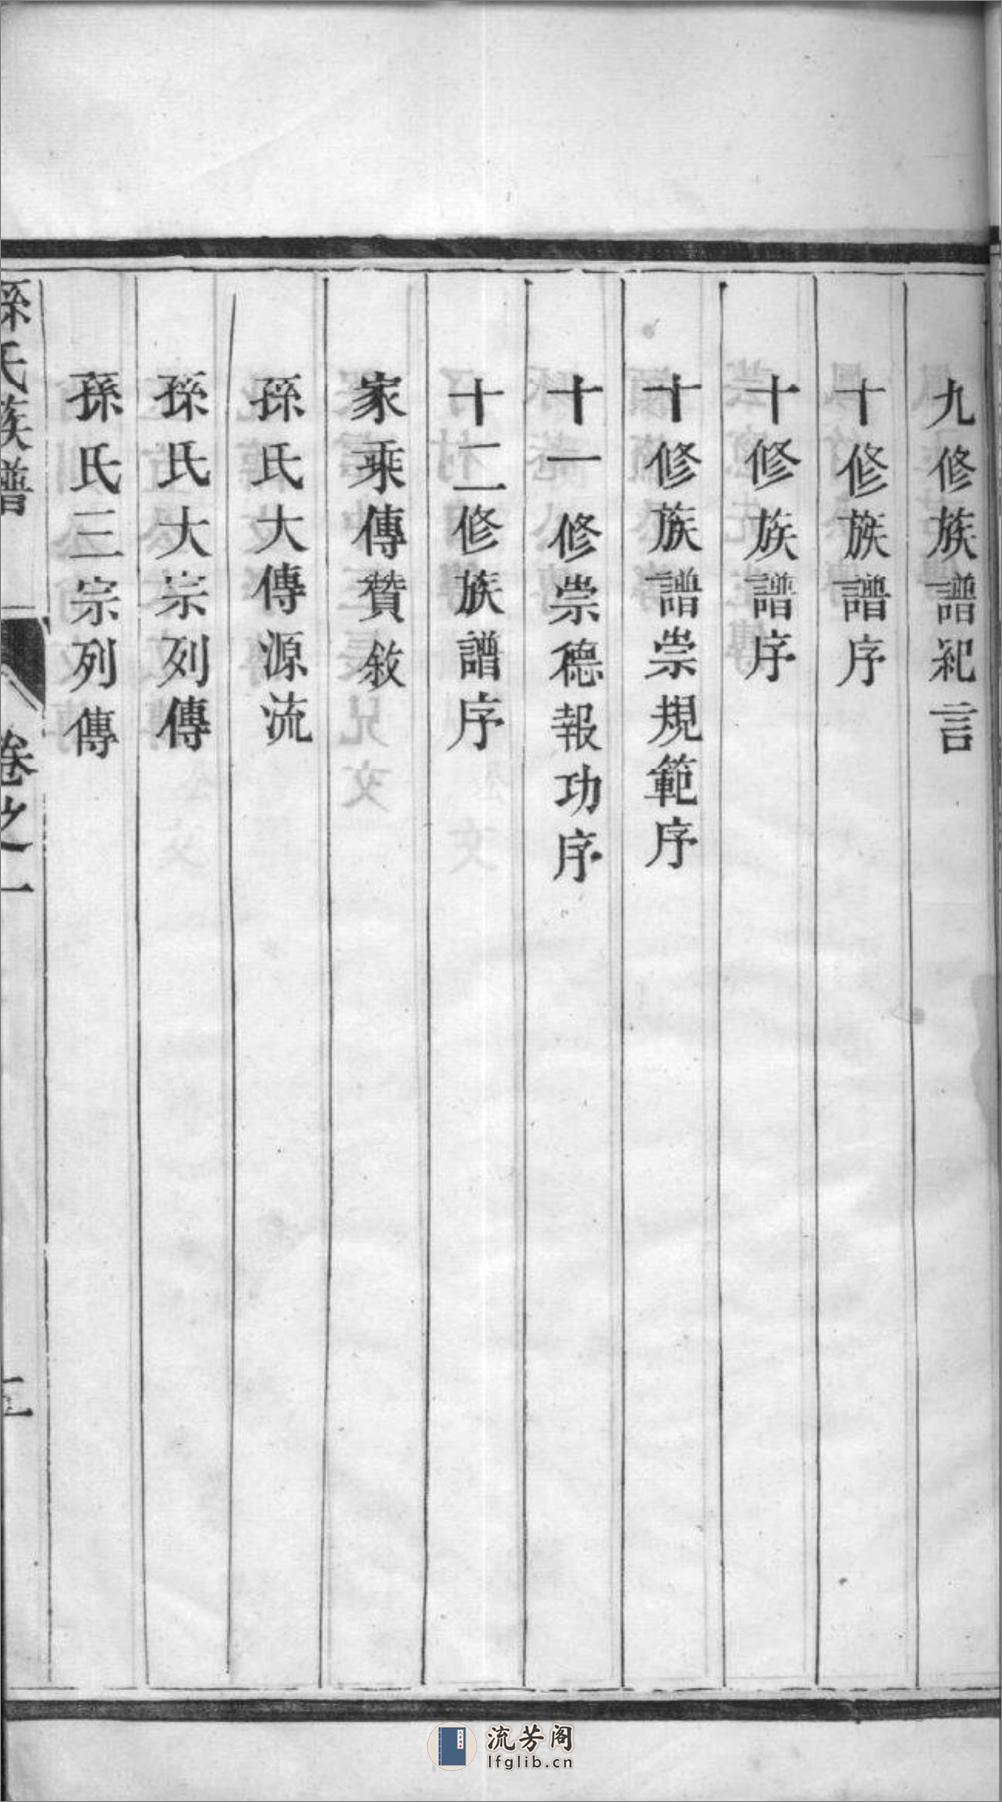 九修族譜紀言
十修族譜序
十修族譜序
十修族譜崇規範序
十一修崇德報功序
十二修族譜序
家乘傳贊敘
孫氏大傳源流
孫氏大宗列傳
孫氏三宗列傳
孫氏族譜
卷之一
流芳阁
lfglib.cn